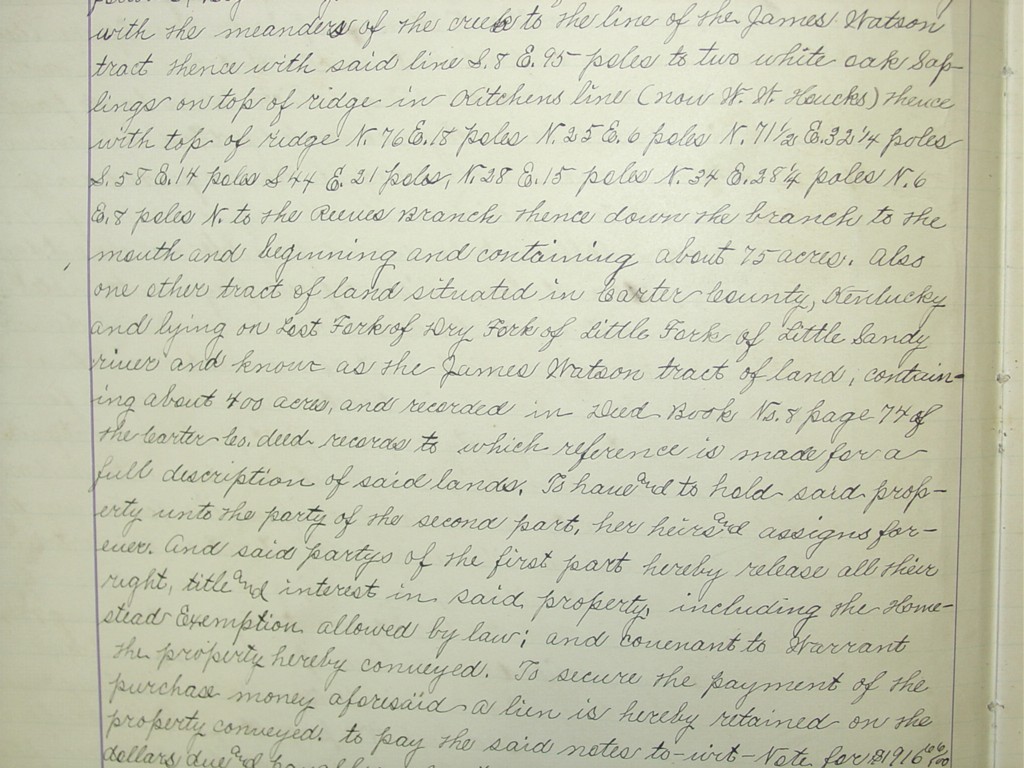 with the meanders of the creek to the line of the James Watson
tract thence with said line S. 8 E. 95 poles to two white oak Sap-
lings on top of ridge in Kitchens line (now W. W. Houcks) thence
with top of ridge N. 76 E. 18 poles N. 25 E. 6 poles N. 71 1/2 E. 32 1/4 poles
S. 58 E. 14 poles S 44 E. 21 poles, N. 28 E. 15 poles N. 34 E. 28 1/4 poles N. 6
E. 8 poles N. to the Reeves Branch thence down the branch to the
mouth and beginning and containing about 75 acres. also
one other tract of land situated in Carter County, Kentucky
and lying on Lost Fork of Dry Fork of Little Fork of Little Sandy
river and known as the James Watson tract of land, contain-
ing about 400 acres, and recorded in Deed Book No. 8 page 74 of
the Carter Co. deed records to which reference is made for a
full description of said lands. To have and to hold said prop-
erty unto the party of the second part, her heirs and assigns for-
ever. And said partys of the first part hereby release all their
right, title and interest in said property, including the Home-
stead Exemption allowed by law; and covenant to Warrant
the property hereby conveyed. To secure the payment of the
purchase money aforesaid a lien is hereby retained on the
property conveyed. to pay the said notes to-wit- Note for $1916
dollars due and